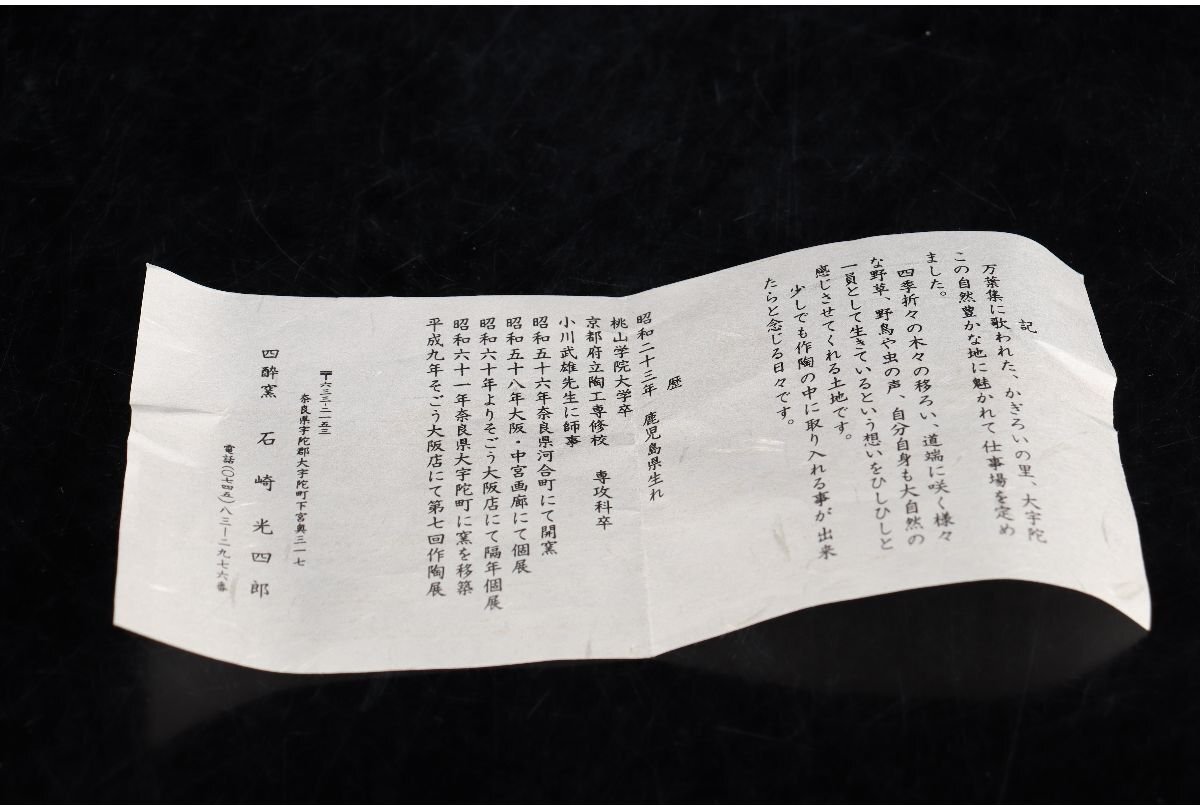 記
万葉集に歌われた、かぎろいの里、大宇陀
この自然豊かな地に魅かれて仕事場を定め
ました。
四季折々の木々の移ろい、道端に咲く様々
な野草、野鳥や虫の声、自分自身も大自然の
一員として生きているという想いをひしひしと
感じさせてくれる土地です。
少しでも作陶の中に取り入れる事が出来
たらと念じる日々です。
歴
昭和二十三年 鹿児島県生れ
桃山学院大学卒
京都府立陶工専修校 専攻科卒
小川武雄先生に師事
昭和五十六年奈良県河合町にて開窯
昭和五十八年大阪・中宮画廊にて個展
昭和六十年よりそごう大阪店にて隔年個展
昭和六十一年奈良県大宇陀町に窯を移築
平成九年そごう大阪店にて第七回作陶展
〒六三三-二一五三
奈良県宇陀郡大宇陀町下宮奥三一七
四酔窯 石崎光四郎
電話(〇七四五)八三-二九七六番